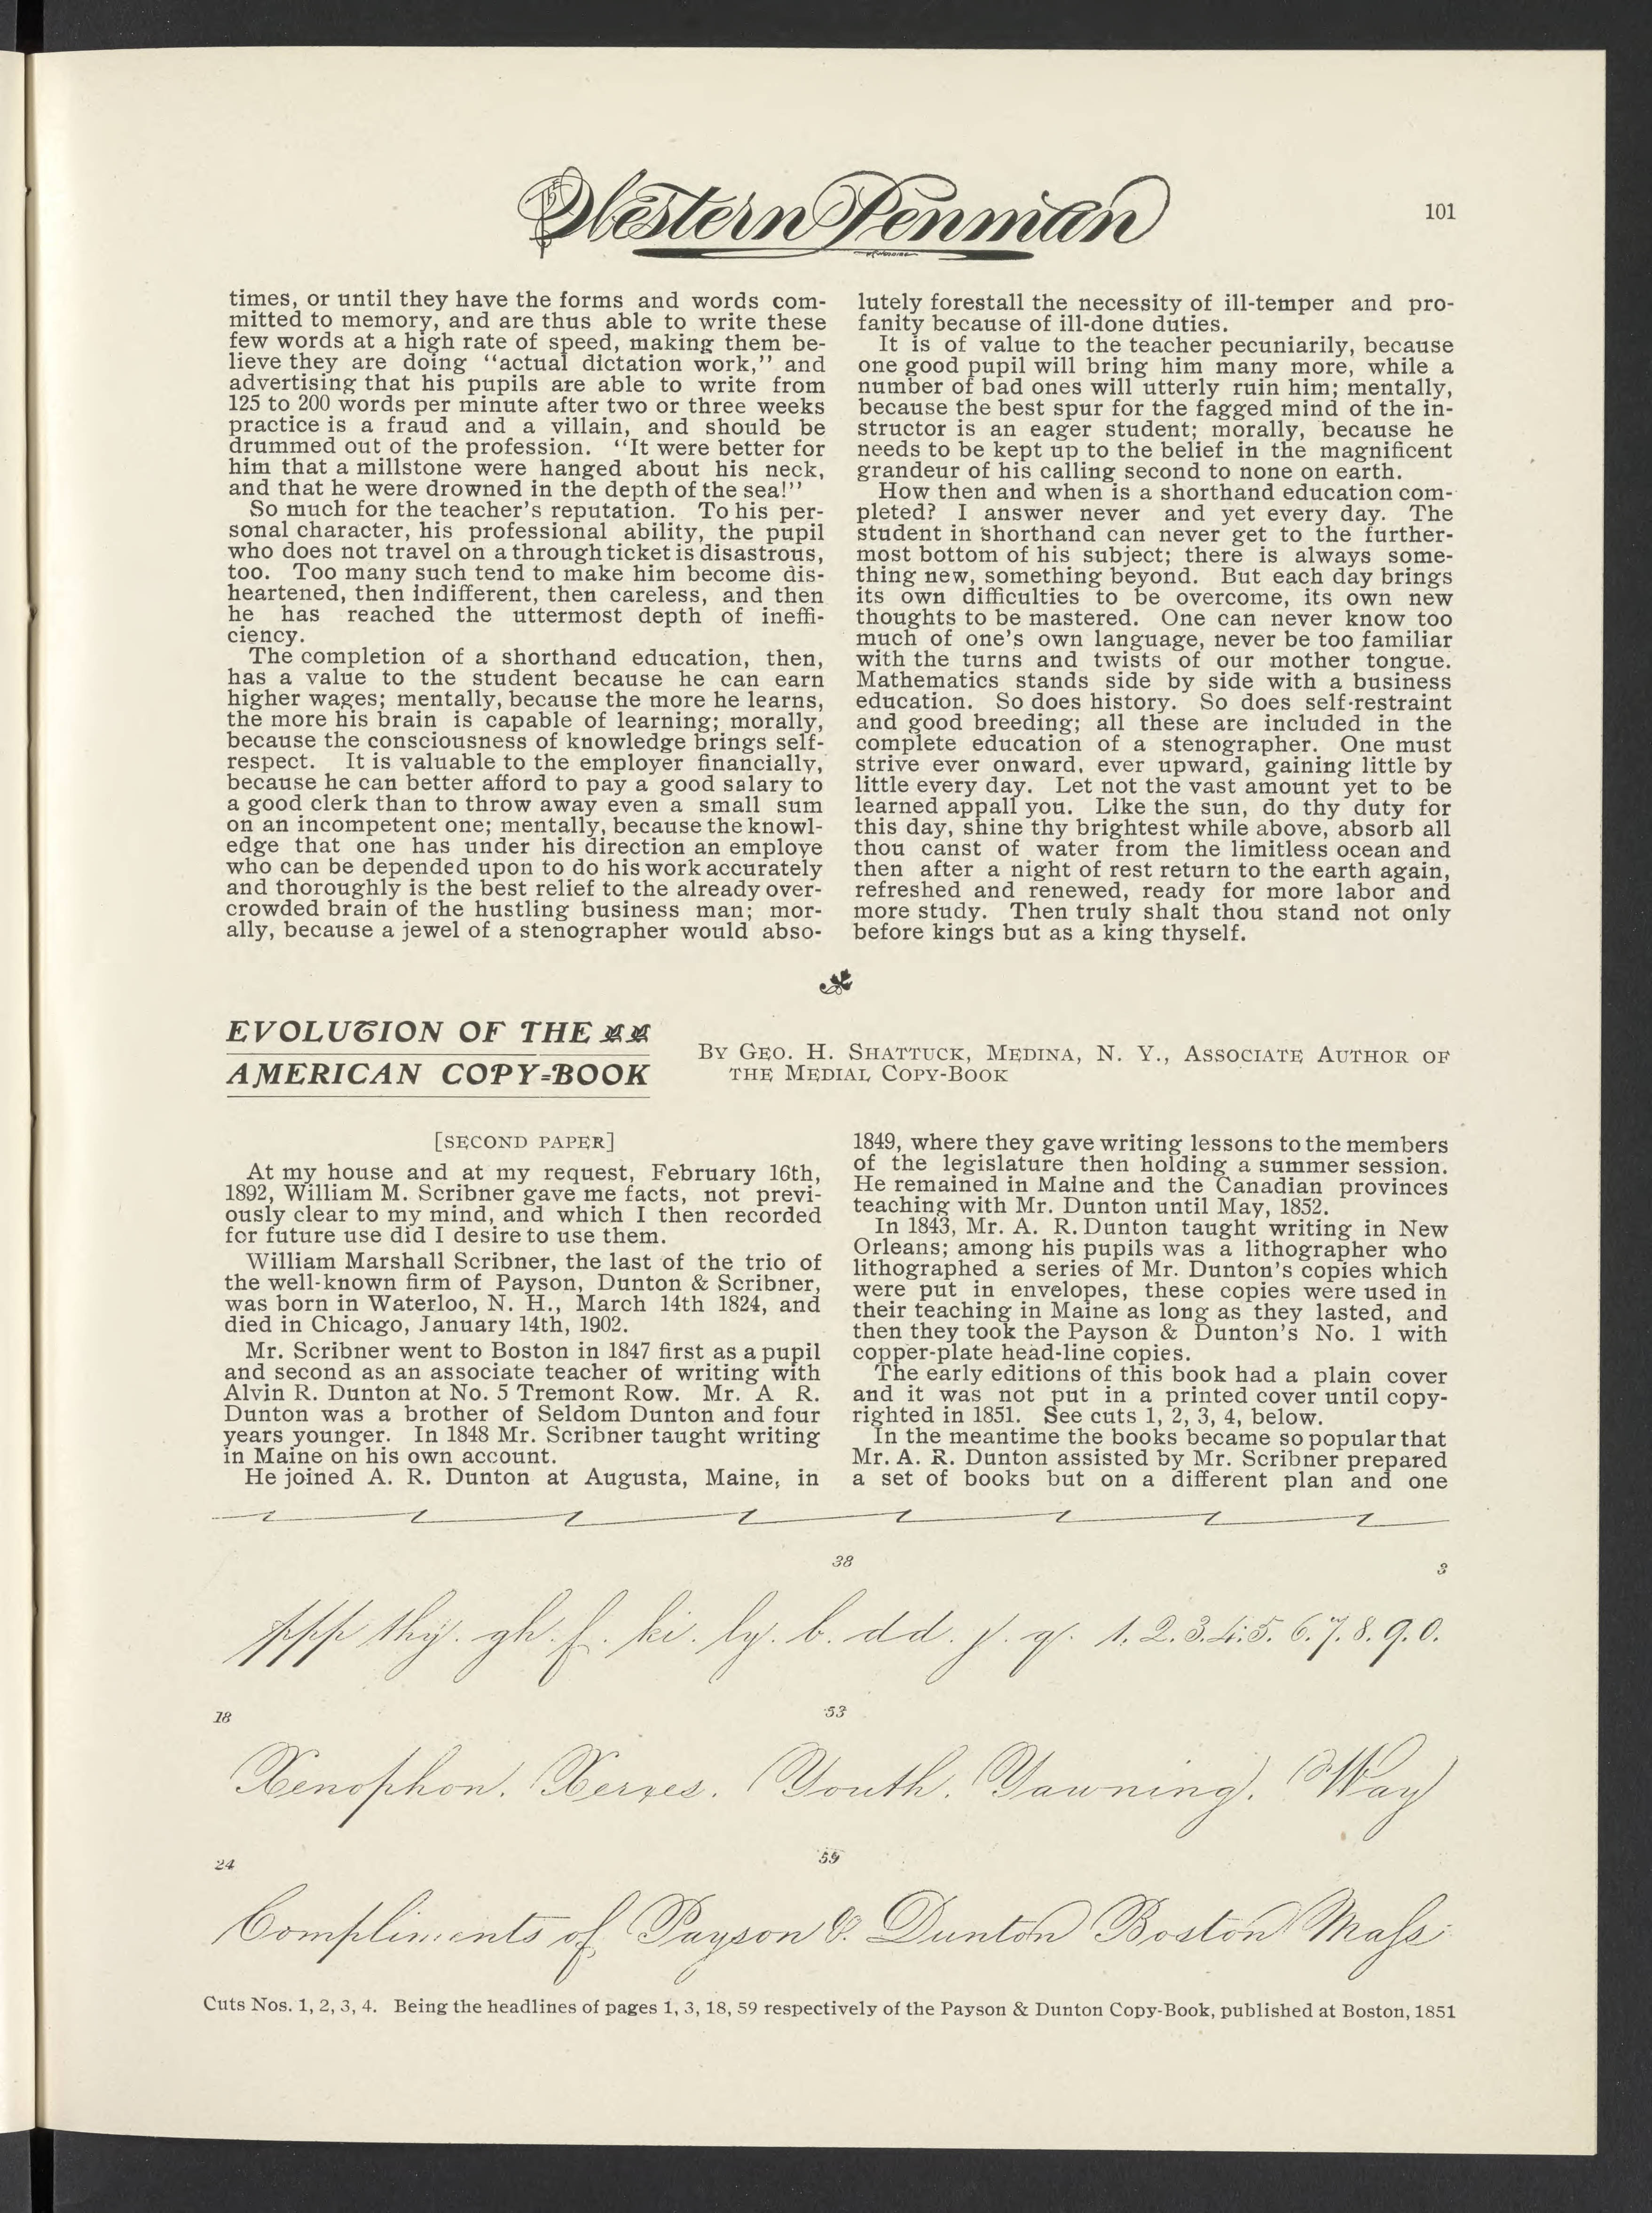 Western Penman
101
times, or until they have the forms and words com-
mitted to memory, and are thus able to write these
few words at a high rate of speed, making them be-
lieve they are doing "actual dictation work," and
advertising that his pupils are able to write from
125 to 200 words per minute after two or three weeks
practice is a fraud and a villain, and should be
drummed out of the profession. "It were better for
him that a millstone were hanged about his neck,
and that he were drowned in the depth of the sea!"
So much for the teacher's reputation. To his per-
sonal character, his professional ability, the pupil
who does not travel on a through ticket is disastrous,
too. Too many such tend to make him become dis-
heartened, then indifferent, then careless, and then
he has reached the uttermost depth of ineffi-
ciency.
The completion of a shorthand education, then,
has a value to the student because he can earn
higher wages; mentally, because the more he learns,
the more his brain is capable of learning; morally,
because the consciousness of knowledge brings self-
respect. It is valuable to the employer financially,
because he can better afford to pay a good salary to
a good clerk than to throw away even a small sum
on an incompetent one; mentally, because the knowl-
edge that one has under his direction an employe
who can be depended upon to do his work accurately
and thoroughly is the best relief to the already over-
crowded brain of the hustling business man; mor-
ally, because a jewel of a stenographer would abso-
lutely forestall the necessity of ill-temper and pro-
fanity because of ill-done duties.
It is of value to the teacher pecuniarily, because
one good pupil will bring him many more, while a
number of bad ones will utterly ruin him; mentally,
because the best spur for the fagged mind of the in-
structor is an eager student; morally, because he
needs to be kept up to the belief in the magnificent
grandeur of his calling second to none on earth.
How then and when is a shorthand education com-
pleted? I answer never and yet every day. The
student in shorthand can never get to the further-
most bottom of his subject; there is always some-
thing new, something beyond. But each day brings
its own difficulties to be overcome, its own new
thoughts to be mastered. One can never know too
much of one's own language, never be too familiar
with the turns and twists of our mother tongue.
Mathematics stands side by side with a business
education. So does history. So does self-restraint
and good breeding; all these are included in the
complete education of a stenographer. One must
strive ever onward, ever upward, gaining little by
little every day. Let not the vast amount yet to be
learned appall you. Like the sun, do thy duty for
this day, shine thy brightest while above, absorb all
thou canst of water from the limitless ocean and
then after a night of rest return to the earth again,
refreshed and renewed, ready for more labor and
more study. Then truly shalt thou stand not only
before kings but as a king thyself.
EVOLUTION OF THE
AMERICAN COPY-BOOK
By Geo. H. Shattuck, Medina, N. Y., Associate Author of
the Medial Copy-Book
[SECOND PAPER]
At my house and at my request, February 16th,
1892, William M. Scribner gave me facts, not previ-
ously clear to my mind, and which I then recorded
for future use did I desire to use them.
William Marshall Scribner, the last of the trio of
the well-known firm of Payson, Dunton & Scribner,
was born in Waterloo, N. H., March 14th 1824, and
died in Chicago, January 14th, 1902.
Mr. Scribner went to Boston in 1847 first as a pupil
and second as an associate teacher of writing with
Alvin R. Dunton at No. 5 Tremont Row. Mr. A R.
Dunton was a brother of Seldom Dunton and four
years younger. In 1848 Mr. Scribner taught writing
in Maine on his own account.
He joined A. R. Dunton at Augusta, Maine, in
1849, where they gave writing lessons to the members
of the legislature then holding a summer session.
He remained in Maine and the Canadian provinces
teaching with Mr. Dunton until May, 1852.
In 1843, Mr. A. R. Dunton taught writing in New
Orleans; among his pupils was a lithographer who
lithographed a series of Mr. Dunton's copies which
were put in envelopes, these copies were used in
their teaching in Maine as long as they lasted, and
then they took the Payson & Dunton's No. 1 with
copper-plate head-line copies.
The early editions of this book had a plain cover
and it was not put in a printed cover until copy-
righted in 1851. See cuts 1, 2, 3, 4, below.
In the meantime the books became so popular that
Mr. A. R. Dunton assisted by Mr. Scribner prepared
a set of books but on a different plan and one
38
3
ppp thy. gh. f. ki. ly. b. dd. y. q. 1. 2. 3. 4. 5. 6. 7. 8. 9. 0.
18
53
Xenophon. Xerxes. Youth. Yawning. Way
24
59
Compliments of Payson & Dunton Boston Mass
Cuts Nos. 1, 2, 3, 4. Being the headlines of pages 1, 3, 18, 59 respectively of the Payson & Dunton Copy-Book, published at Boston, 1851